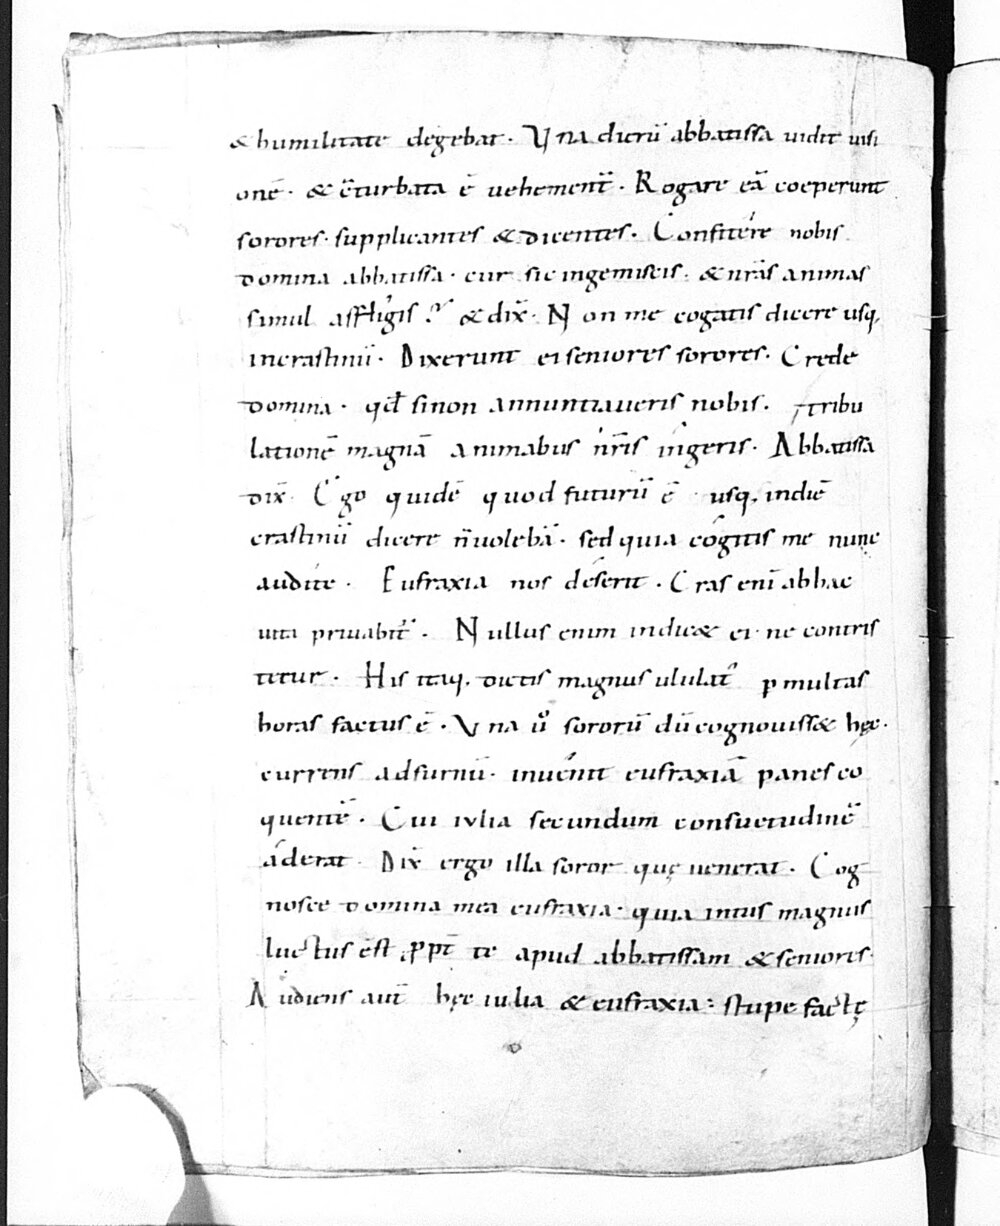 & humilitate degebat. Una dieru᷑ abbatissa uidit uisi
onē. & ꝯturbata ē uehement᷑. Rogare eā coeperunt
sorores. supplicantes & dicentes. Confitere nobis
domina abbatissa. cur sic ingemiscis. & nr̄as animas
simul affligis? & dix̄. Non me cogatis dicere usq;
in crastinū. Dixerunt ei seniores sorores. Crede
domina. qđ si non annuntiaueris nobis. tribu
lationē magnā animabus nr̄is ingeris. Abbatissa
dix̄. Ego quidē quod futurū ē usq; in diē
crastinū dicere n̄ uolebā. sed quia cogitis me nunc
audite. Eufraxia nos deserit. Cras enī ab hac
uita priuabit᷑. Nullus enim indic& ei. ne contris
tetur. His itaq; dictis magnus ululat᷒ p multas
horas factus ē. Una ů sororū dū cognouiss& hęc.
currens ad furnū. inuenit eufraxiā panes co
quentē. Cui iulia secundum consuetudinē
aderat. Dix̄ ergo illa soror quę uenerat. Cog
nosce domina mea eufraxia. quia intus magnus
luctus est ꝓpt̄ te apud abbatissam & seniores.
Audiens aut̄ hęc iulia & eufraxia: stupefactę